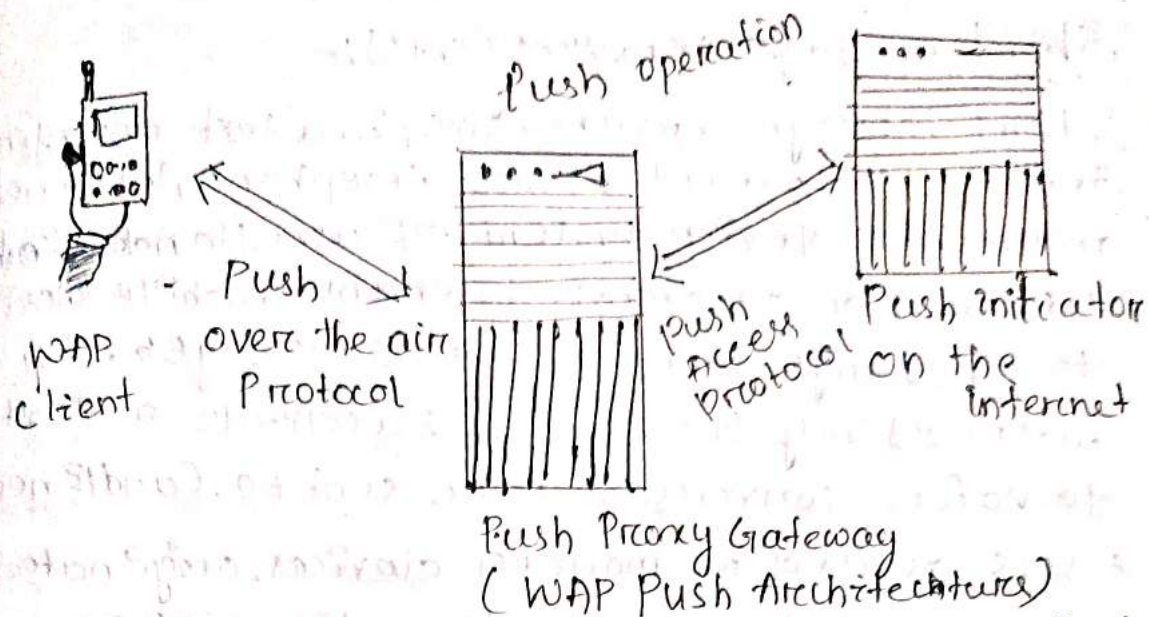 Push operation
WAP
Client
Push
over the air
Protocol
Push
Access
Protocol
Push initiator
on the
internet
Push Proxy Gateway
(WAP Push Architectures)